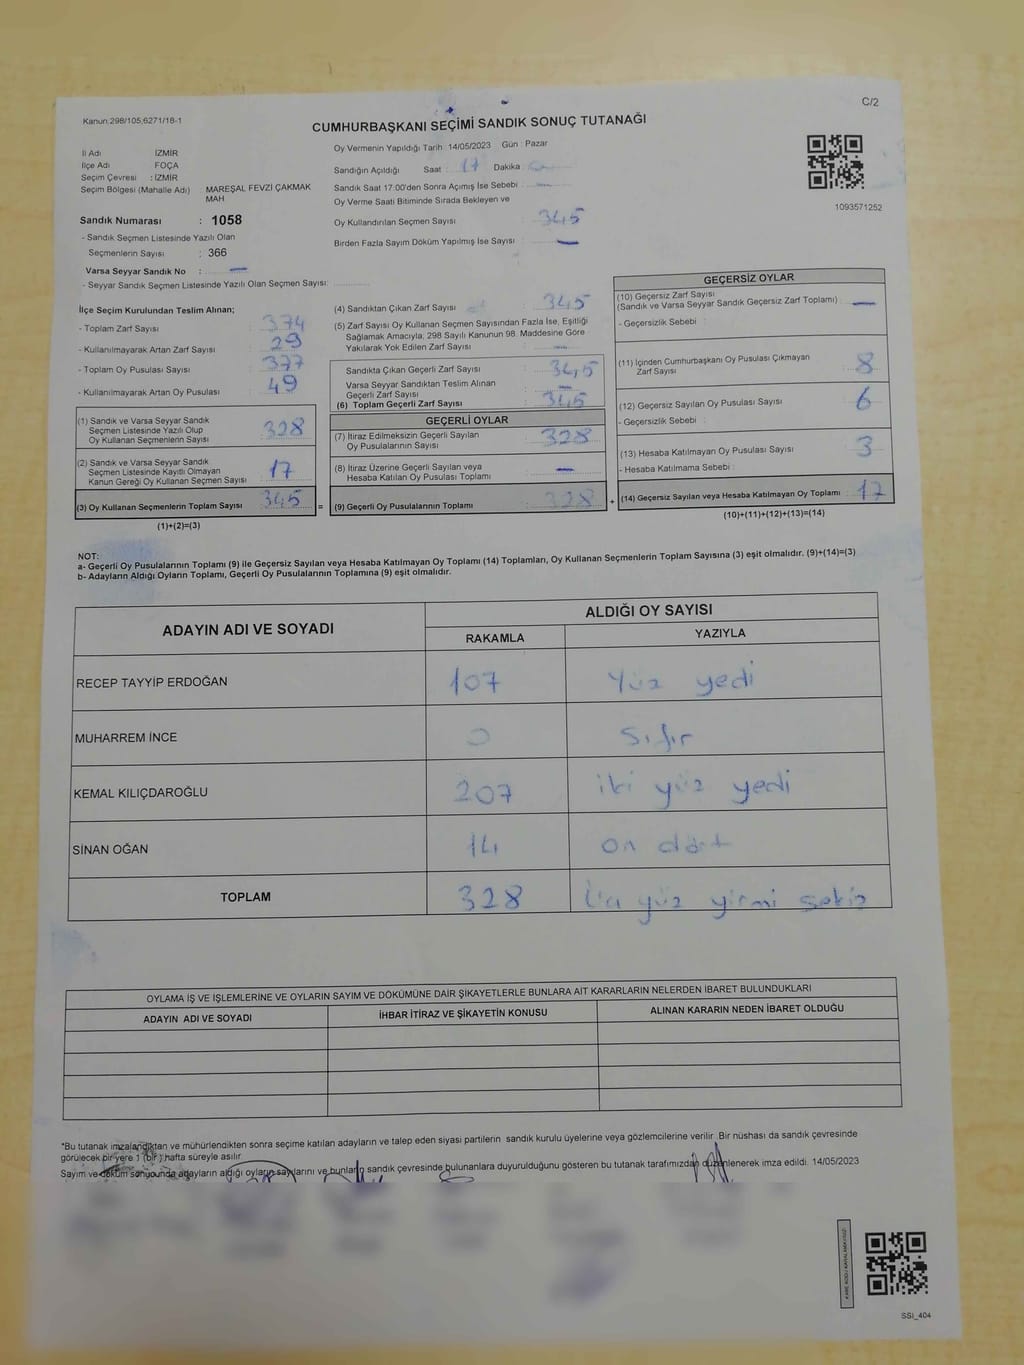 C/2
Kanun.298/105,6271/18-1
CUMHURBAŞKANI SEÇİMİ SANDIK SONUÇ TUTANAĞI
İl Adı İZMİR
İlçe Adı FOÇA
Seçim Çevresi : İZMİR
Seçim Bölgesi (Mahalle Adı) MAREŞAL FEVZİ ÇAKMAK MAH
Sandık Numarası : 1058
- Sandık Seçmen Listesinde Yazılı Olan
Seçmenlerin Sayısı : 366
Varsa Seyyar Sandık No : —
- Seyyar Sandık Seçmen Listesinde Yazılı Olan Seçmen Sayısı:
Oy Vermenin Yapıldığı Tarih 14/05/2023 Gün : Pazar
Sandığın Açıldığı Saat : 17 Dakika :
Sandık Saat 17.00'den Sonra Açımış İse Sebebi : —
Oy Verme Saati Bitiminde Sırada Bekleyen ve
Oy Kullandırılan Seçmen Sayısı : 345
Birden Fazla Sayım Döküm Yapılmış İse Sayısı : —
1093571252
İlçe Seçim Kurulundan Teslim Alınan;
- Toplam Zarf Sayısı : 374
- Kullanılmayarak Artan Zarf Sayısı : 29
- Toplam Oy Pusulası Sayısı : 377
- Kullanılmayarak Artan Oy Pusulası : 49
(1) Sandık ve Varsa Seyyar Sandık
Seçmen Listesinde Yazılı Olup
Oy Kullanan Seçmenlerin Sayısı : 328
(2) Sandık ve Varsa Seyyar Sandık
Seçmen Listesinde Kayıtlı Olmayan
Kanun Gereği Oy Kullanan Seçmen Sayısı : 17
(3) Oy Kullanan Seçmenlerin Toplam Sayısı : 345 =
(1)+(2)=(3)
(4) Sandıktan Çıkan Zarf Sayısı : 345
(5) Zarf Sayısı Oy Kullanan Seçmen Sayısından Fazla İse, Eşitliği
Sağlamak Amacıyla; 298 Sayılı Kanunun 98. Maddesine Göre
Yakılarak Yok Edilen Zarf Sayısı : —
Sandıkta Çıkan Geçerli Zarf Sayısı : 345
Varsa Seyyar Sandıktan Teslim Alınan
Geçerli Zarf Sayısı : —
(6) Toplam Geçerli Zarf Sayısı : 345
GEÇERLİ OYLAR
(7) İtiraz Edilmeksizin Geçerli Sayılan
Oy Pusulalarının Sayısı : 328
(8) İtiraz Üzerine Geçerli Sayılan veya
Hesaba Katılan Oy Pusulası Toplamı : —
(9) Geçerli Oy Pusulalarının Toplamı : 328 +
GEÇERSİZ OYLAR
(10) Geçersiz Zarf Sayısı
(Sandık ve Varsa Seyyar Sandık Geçersiz Zarf Toplamı) : —
- Geçersizlik Sebebi :
(11) İçinden Cumhurbaşkanı Oy Pusulası Çıkmayan
Zarf Sayısı : 8
(12) Geçersiz Sayılan Oy Pusulası Sayısı : 6
- Geçersizlik Sebebi :
(13) Hesaba Katılmayan Oy Pusulası Sayısı : 3
- Hesaba Katılmama Sebebi :
(14) Geçersiz Sayılan veya Hesaba Katılmayan Oy Toplamı : 17
(10)+(11)+(12)+(13)=(14)
NOT:
a- Geçerli Oy Pusulalarının Toplamı (9) ile Geçersiz Sayılan veya Hesaba Katılmayan Oy Toplamı (14) Toplamları, Oy Kullanan Seçmenlerin Toplam Sayısına (3) eşit olmalıdır. (9)+(14)=(3)
b- Adayların Aldığı Oyların Toplamı, Geçerli Oy Pusulalarının Toplamına (9) eşit olmalıdır.
ADAYIN ADI VE SOYADI ALDIĞI OY SAYISI
RAKAMLA YAZIYLA
RECEP TAYYİP ERDOĞAN 107 Yüz yedi
MUHARREM İNCE 0 Sıfır
KEMAL KILIÇDAROĞLU 207 iki yüz yedi
SİNAN OĞAN 14 on dört
TOPLAM 328 yüz yirmi sekiz
OYLAMA İŞ VE İŞLEMLERİNE VE OYLARIN SAYIM VE DÖKÜMÜNE DAİR ŞİKAYETLERLE BUNLARA AİT KARARLARIN NELERDEN İBARET BULUNDUKLARI
ADAYIN ADI VE SOYADI İHBAR İTİRAZ VE ŞİKAYETİN KONUSU ALINAN KARARIN NEDEN İBARET OLDUĞU
*Bu tutanak imzalandıktan ve mühürlendikten sonra seçime katılan adayların ve talep eden siyasi partilerin sandık kurulu üyelerine veya gözlemcilerine verilir. Bir nüshası da sandık çevresinde
görülecek bir yere 1 (bir) hafta süreyle asılır.
Sayım ve döküm sonucunda adayların aldığı oyların sayılarını ve bunların sandık çevresinde bulunanlara duyurulduğunu gösteren bu tutanak tarafımızdan düzenlenerek imza edildi. 14/05/2023
SSI_404